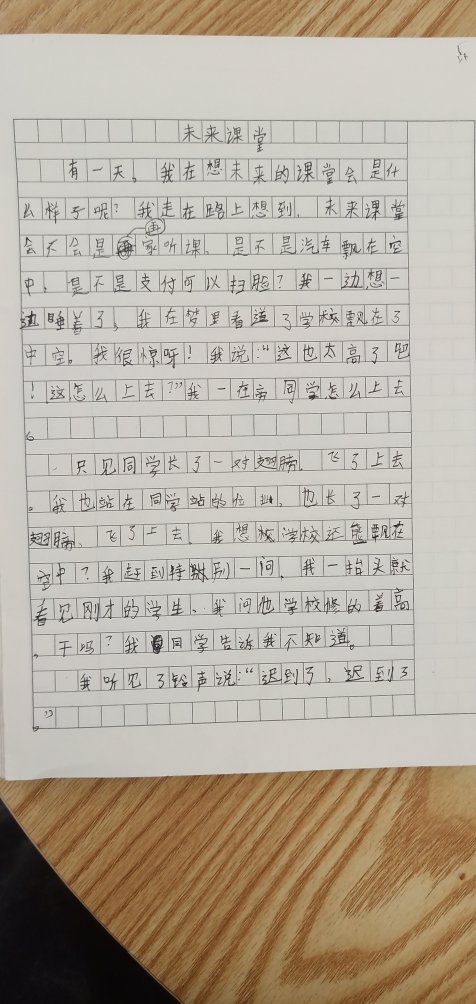 未来课堂
有一天，我在想未来的课堂会是什
么样子呢？我走在路上想到，未来课堂
会不会是再家听课，是不是汽车飘在空
中，是不是支付可以扫脸？我一边想一
边睡着了，我在梦里看道了学校飘在了
中空。我很惊呀！我说：“这也太高了吧
！这怎么上去？”我一在旁同学怎么上去
。
只见同学长了一对翅膀，飞了上去
。我也站在同学站的位，也长了一对
翅膀，飞了上去，我想校学校还能飘在
空中？我起到特别一问，我一抬头就
看见刚才的学生、我问他学校修的着高
，干吗？我同学告诉我不知道。
我听见了铃声说：“迟到了，迟到了
。”